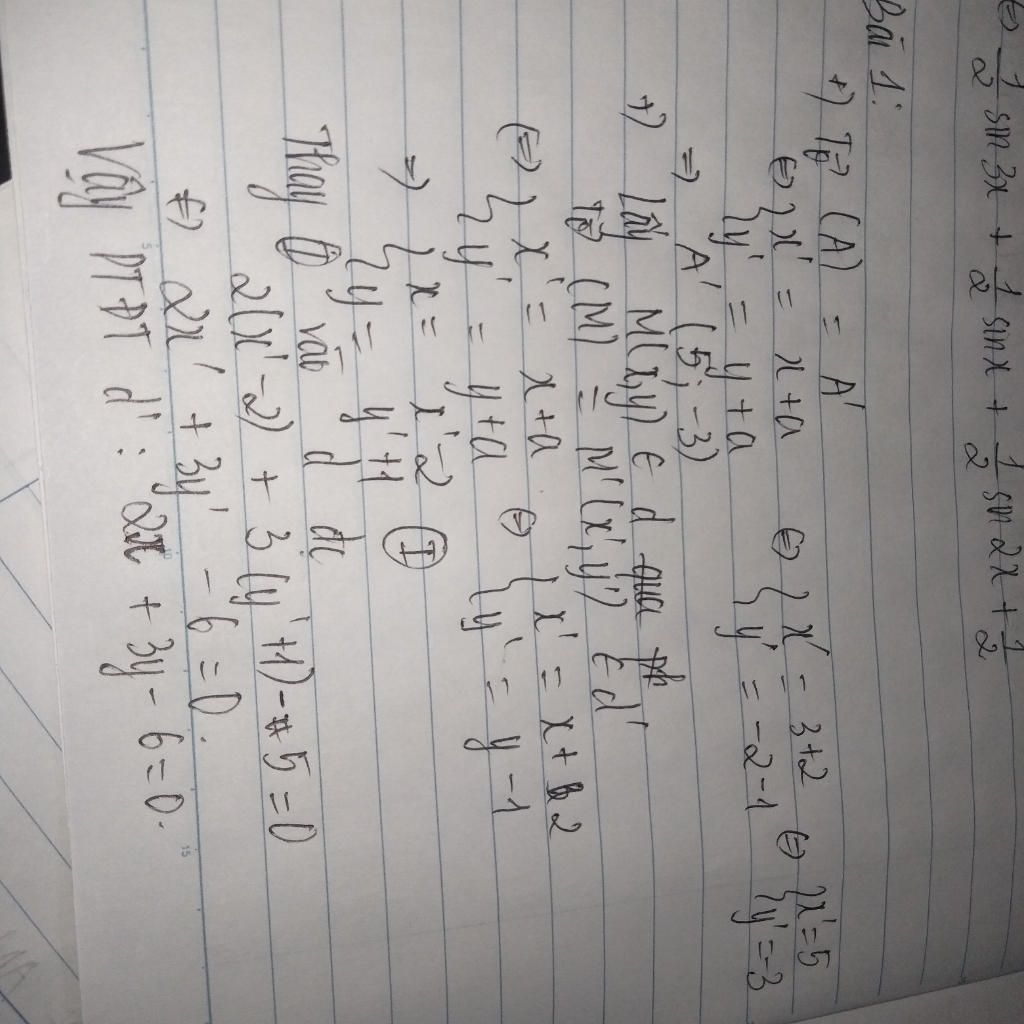 ⇔ 1/2 sin3x + 1/2 sinx + 1/2 sin2x + 1/2
Bài 1:
+) Tv⃗ (A) = A'
⇔ { x' = x+a ⇔ { x' = 3+2 ⇔ { x' = 5
{ y' = y+a { y' = -2-1 { y' = -3
⇒ A' (5; -3)
+) Lấy M(x,y) ∈ d qua
Tv⃗ (M) = M'(x', y') ∈ d'
(⇒) { x' = x+a ⇔ { x' = x+2
{ y' = y+a { y' = y-1
⇒ { x = x'-2 (I)
{ y = y'+1
Thay (I) vào d đc
2(x'-2) + 3(y'+1) - 5 = 0
⇔ 2x' + 3y' - 6 = 0.
Vậy PTĐT d': 2x + 3y - 6 = 0.